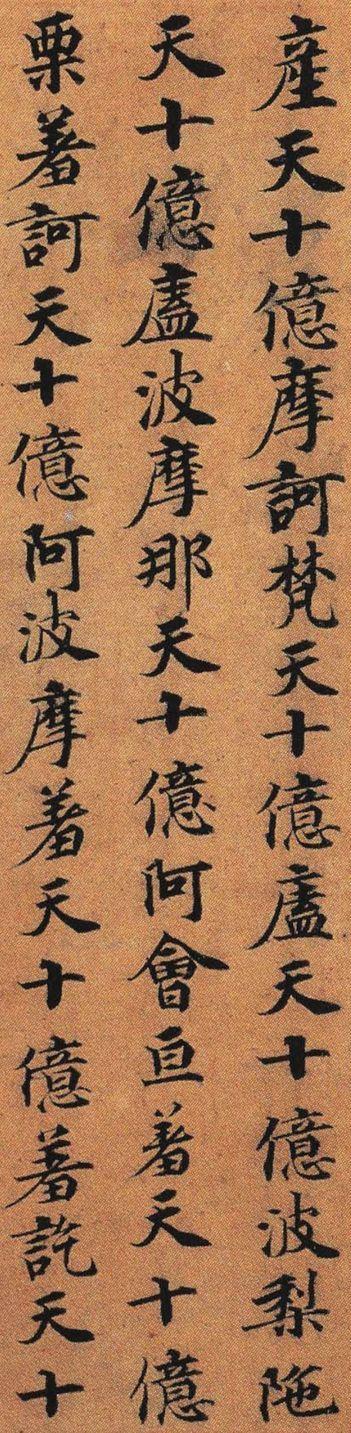 産天十億摩訶梵天十億廬天十億波梨陁
天十億廬波摩那天十億阿會亘羞天十億
栗羞訶天十億阿波摩羞天十億羞訖天十